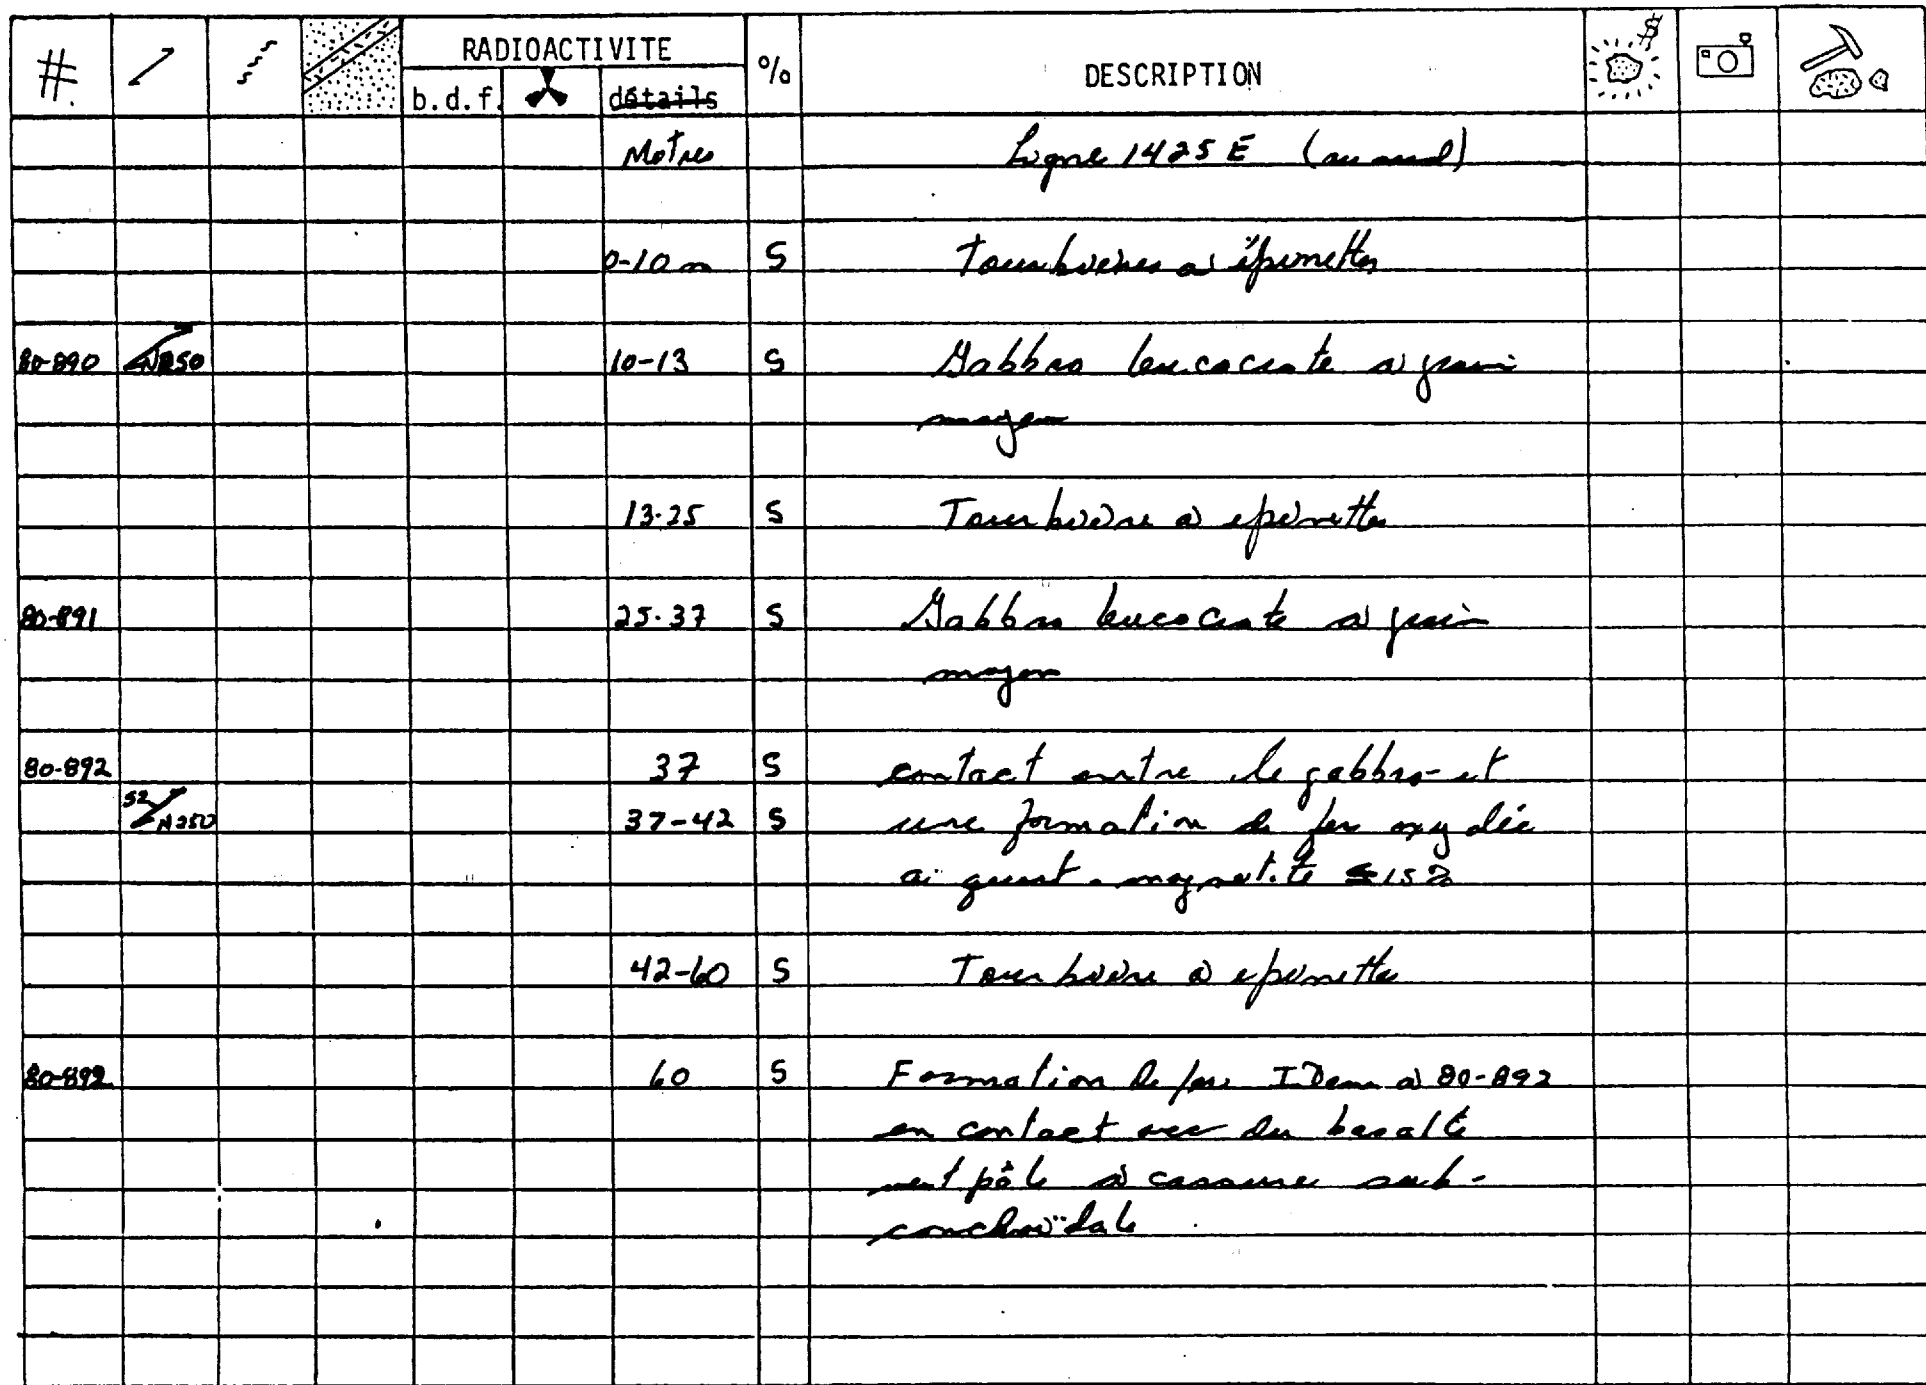 # RADIOACTIVITE % DESCRIPTION $
b.d.f. détails
Mètres Ligne 1425 E (au sud)
0-10 m S Tourbières à épinettes
80-890 N250 10-13 S Gabbro leucocrate à grain
moyen
13-25 S Tourbière à epinettes
80-891 25-37 S Gabbro leucocrate à grain
moyen
80-892 37 S contact entre le gabbro et
52 N250 37-42 S une formation de fer oxydée
à quart-magnetite ≤15%
42-60 S Tourbière à epinettes
80-892 60 S Formation de fer IDem à 80-892
en contact avec du basalte
vert pâle à cassure sub-
conchoïdale